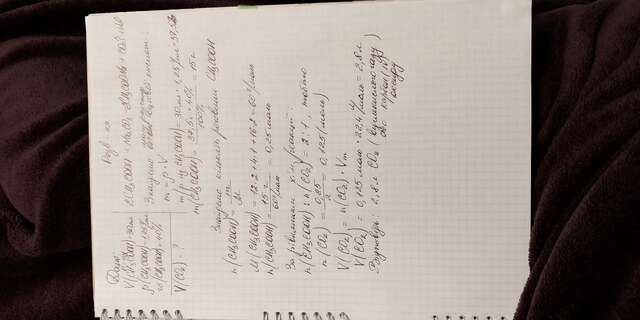 Дано:
V(CH₃COOH) = 30мл
ρ(CH₃COOH) = 1,25г/мл
w(CH₃COOH) = 40%
V(CO₂) - ?
2CH₃COOH + Na₂CO₃ = 2CH₃COONa + CO₂ + H₂O
m = ρ · V
m(р-ну CH₃COOH) = 30мл · 1,25г/мл = 37,5г
m(CH₃COOH) = 37,5г · 40% / 100% = 15г
Знайдемо кількість речовини CH₃COOH
n(CH₃COOH) = m / M
M(CH₃COOH) = 12·2 + 4·1 + 16·2 = 60г/моль
n(CH₃COOH) = 15г / 60г/моль = 0,25моль
За рівнянням х. реакції:
n(CH₃COOH) : n(CO₂) = 2 : 1, тобто
n(CO₂) = 0,25 / 2 = 0,125(моль)
V(CO₂) = n(CO₂) · Vm
V(CO₂) = 0,125моль · 22,4 л/моль = 2,8л
Відповідь: 2,8л CO₂ (вуглекислого газу
або карбон (IV)
оксиду)